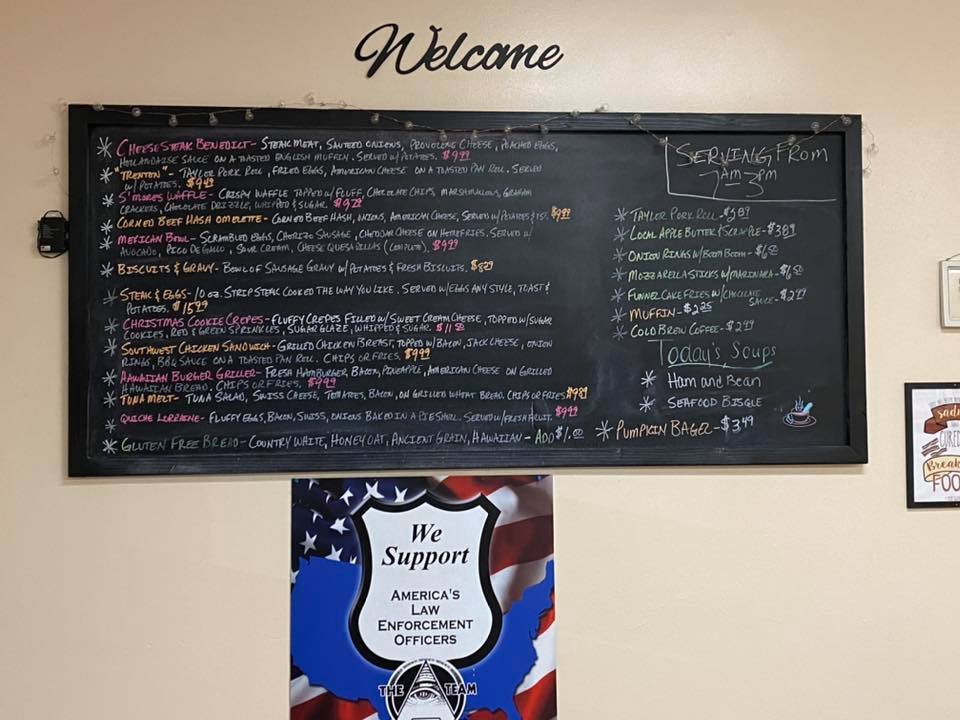 Welcome
CHEESESTEAK BENEDICT- STEAK MEAT, SAUTEED ONIONS, PROVOLONE CHEESE, POACHED EGGS,
HOLLANDAISE SAUCE ON A TOASTED ENGLISH MUFFIN. SERVED W/POTATOES. $9.99
"TRENTON"- TAYLOR PORK ROLL, FRIED EGGS, AMERICAN CHEESE ON A TOASTED PAN ROLL. SERVED
W/ POTATOES. $9.49
S'MORES WAFFLE- CRISPY WAFFLE TOPPED W/FLUFF, CHOCOLATE CHIPS, MARSHMALLOWS, GRAHAM
CRACKERS, CHOCOLATE DRIZZLE, WHIPPED & SUGAR.
CORNED BEEF HASH OMELETTE- CORNED BEEF HASH, ONIONS, AMERICAN CHEESE, SERVED W/POTATOES & TST.
MEXICAN BOWL- SCRAMBLED EGGS, CHORIZO SAUSAGE, CHEDDAR CHEESE ON HOMEFRIES. SERVED W/
AVOCADO, PICO DE GALLO, SOUR CREAM, CHEESE QUESADILLAS $9.99
BISCUITS & GRAVY- BOWL OF SAUSAGE GRAVY W/POTATOES & FRESH BISCUITS.
STEAK & EGGS- 10 OZ. STRIP STEAK COOKED THE WAY YOU LIKE. SERVED W/EGGS ANY STYLE, TOAST &
POTATOES. $15.99
CHRISTMAS COOKIE CREPES- FLUFFY CREPES FILLED W/SWEET CREAM CHEESE, TOPPED W/SUGAR
COOKIES, RED & GREEN SPRINKLES, SUGAR GLAZE, WHIPPED & SUGAR.
SOUTHWEST CHICKEN SANDWICH- GRILLED CHICKEN BREAST, TOPPED W/BACON, JACK CHEESE, ONION
RINGS, BBQ SAUCE ON A TOASTED PAN ROLL. CHIPS OR FRIES. $9.99
HAWAIIAN BURGER GRILLER- FRESH HAMBURGER, BACON, PINEAPPLE, AMERICAN CHEESE ON GRILLED
HAWAIIAN BREAD. CHIPS OR FRIES. $9.99
TUNA MELT- TUNA SALAD, SWISS CHEESE, TOMATOES, BACON, ON GRILLED WHEAT BREAD. CHIPS OR FRIES
QUICHE LORRAINE- FLUFFY EGGS, BACON, SWISS, ONIONS BAKED IN A PIE SHELL. SERVED W/FRESH FRUIT. $9.99
GLUTEN FREE BREAD- COUNTRY WHITE, HONEY OAT, ANCIENT GRAIN, HAWAIIAN- ADD $1.00
SERVING FROM
7AM-3PM
TAYLOR PORK ROLL- $3.89
LOCAL APPLE BUTTER & SCRAPPLE- $3.89
ONION RINGS W/BOOM BOOM-
MOZZARELLA STICKS W/MARINARA-
FUNNEL CAKE FRIES W/CHOCOLATE
SAUCE- $2.99
MUFFIN- $2.25
COLD BREW COFFEE- $2.99
Today's Soups
HAM AND BEAN
SEAFOOD BISQUE
PUMPKIN BAGEL- $3.49
We
Support
AMERICA'S
LAW
ENFORCEMENT
OFFICERS
THE TEAM